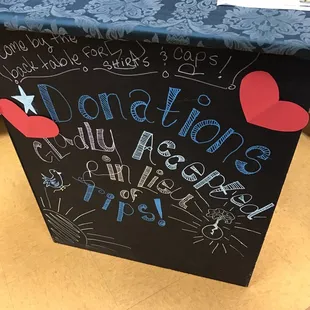 come by the
back table for shirts & caps!
Donations
gladly Accepted
in lieu
of
Tips!